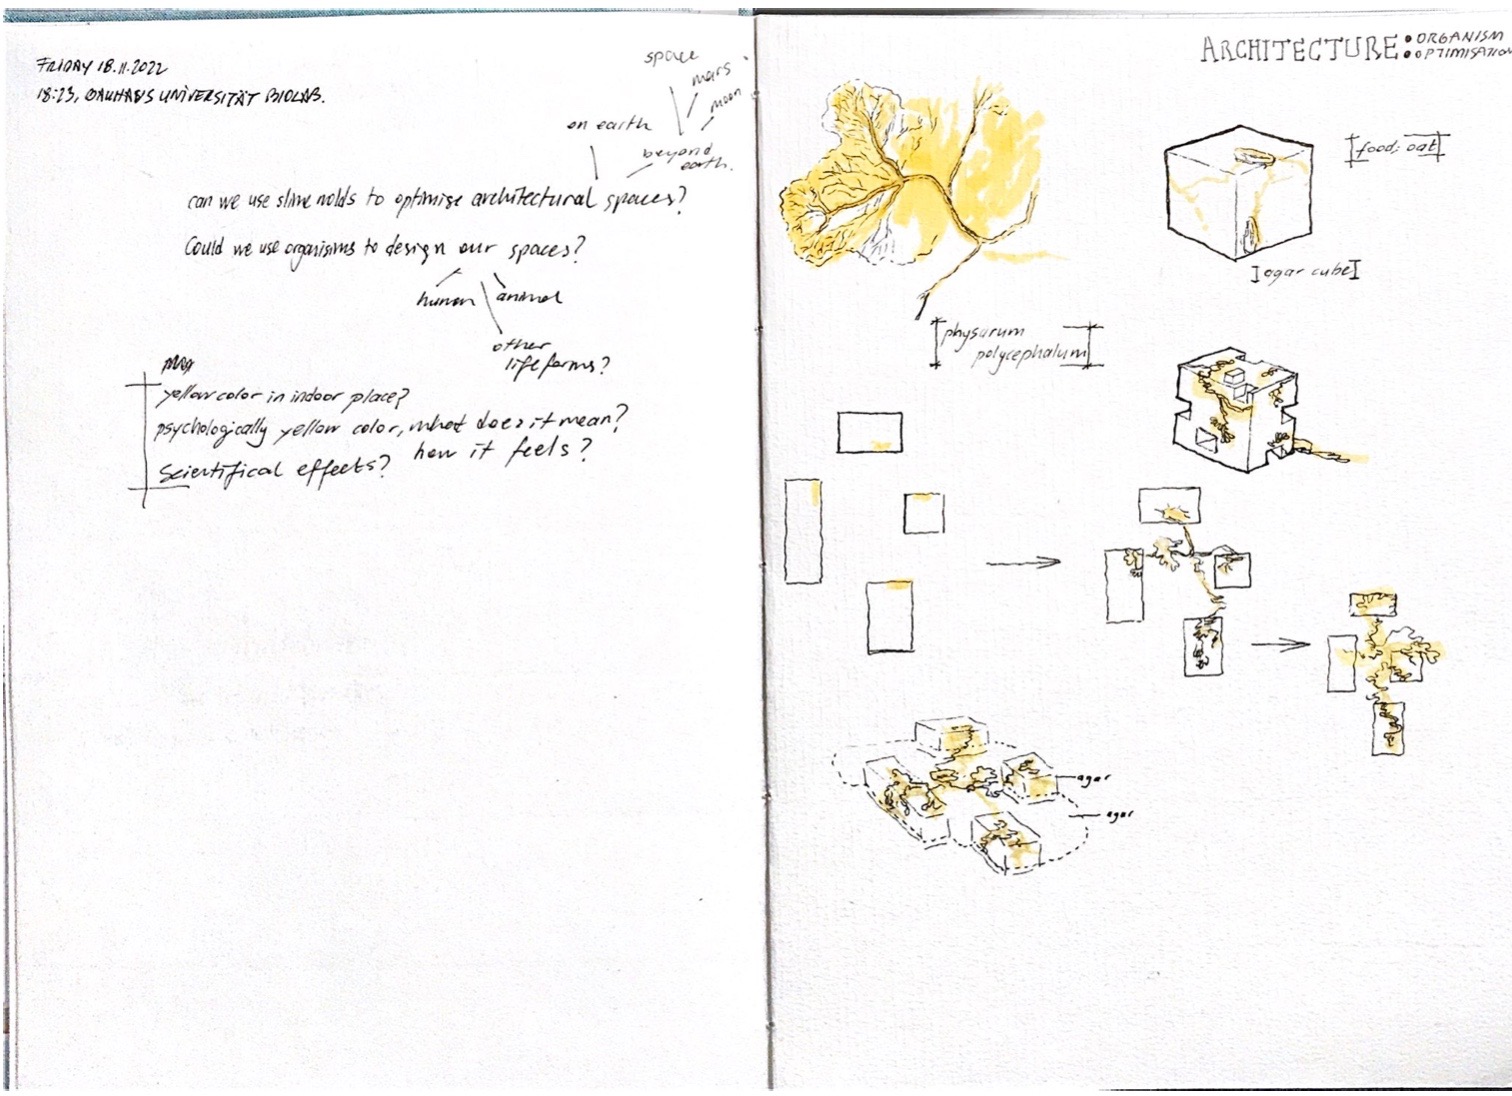 FRIDAY 18.11.2022
18:23, BAUHAUS UNIVERSITÄT BIOLAB.
space
mars
moon
on earth
beyond
earth.
can we use slime molds to optimise architectural spaces?
Could we use organisims to design our spaces?
human
animal
other
life forms?
yellow color in indoor place?
psychologically yellow color, what does it mean?
how it feels?
scientifical effects?
ARCHITECTURE:
ORGANISM
OPTIMISATION
food: oat
agar cube
physarum
polycephalum
agar
agar